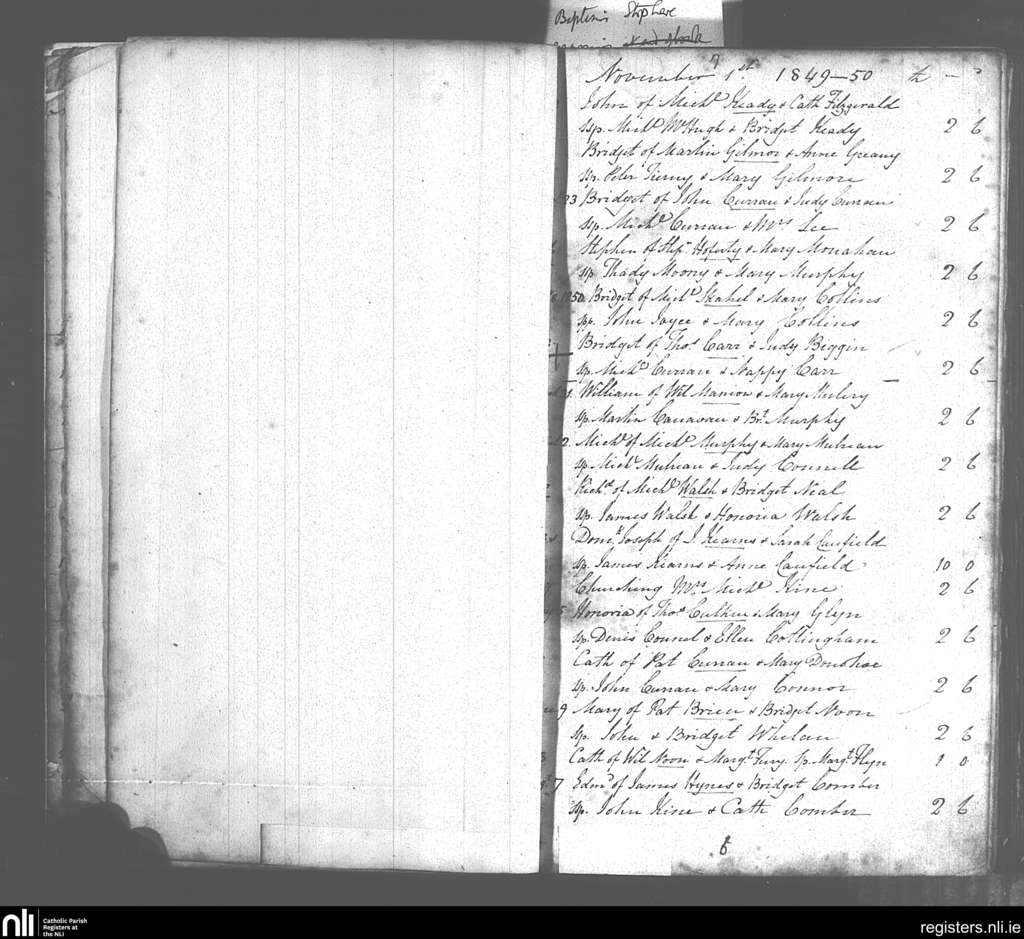 Baptisms
November 1st 1849–50
John of Michl Heady & Cath Fitzgerald
sp. Michl McHugh & Bridget Heady 2 6
Bridget of Martin Gilmor & Anne Greany
sp. Peter Tierny & Mary Gilmore 2 6
23 Bridget of John Curran & Judy Curran
sp. Michl Curran & Mrs Lee 2 6
Stephen of Stepn & Mary Monahan
sp. Thady Moony & Mary Murphy 2 6
1850 Bridget of Michl Skahel & Mary Collins
sp. John Joyce & Mary Collins 2 6
Bridget of Thos Carr & Judy Beggin
sp. Michl Curran & Nappy Carr 2 6
William of Wil Manion & Mary
sp. Martin Canavan & Bt Murphy 2 6
2. Michl of Michl Murphy & Mary Mulrean
sp. Michl Mulrean & Judy Connell 2 6
Richd of Michl Walsh & Bridget Neal
sp. James Walsh & Honoria Walsh 2 6
Domk Joseph of J. Kearns & Sarah Caufield
sp. James Kearns & Anne Caufield 10 0
Churching Mrs Michl Hine 2 6
Honoria of Thos Culkin & Mary Glyn
sp. Denis Connel & Ellen Cottingham 2 6
Cath of Pat Curran & Mary Donohoe
sp. John Curran & Mary Connor 2 6
9 Mary of Pat Brien & Bridget Noon
sp. John & Bridget Whelan 2 6
Cath of Wil Noon & Margt Fury Sp. Margt Flyn 1 0
7 Edmd of James Hynes & Bridget Comber
sp. John Hine & Cath Comber 2 6
8
nli
Catholic Parish
Registers at
the NLI
registers.nli.ie